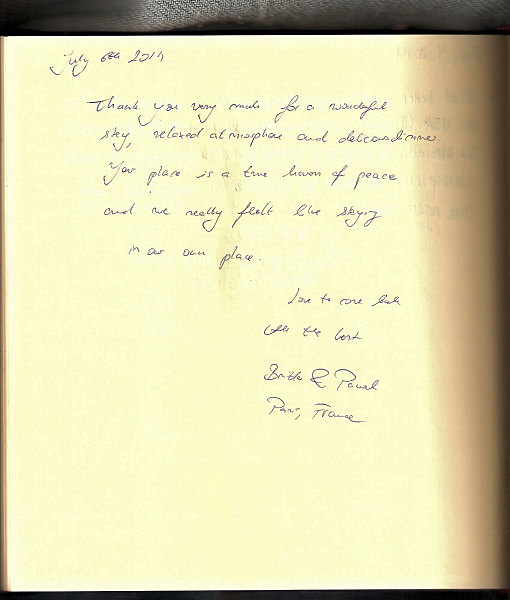 July 6th 2014
Thank you very much for a wonderful
stay, relaxed atmosphere and delicous dinner.
Your place is a true haven of peace
and we really felt like staying
in our own place.
Love to come back
All the best
& Pawel
Paris, France